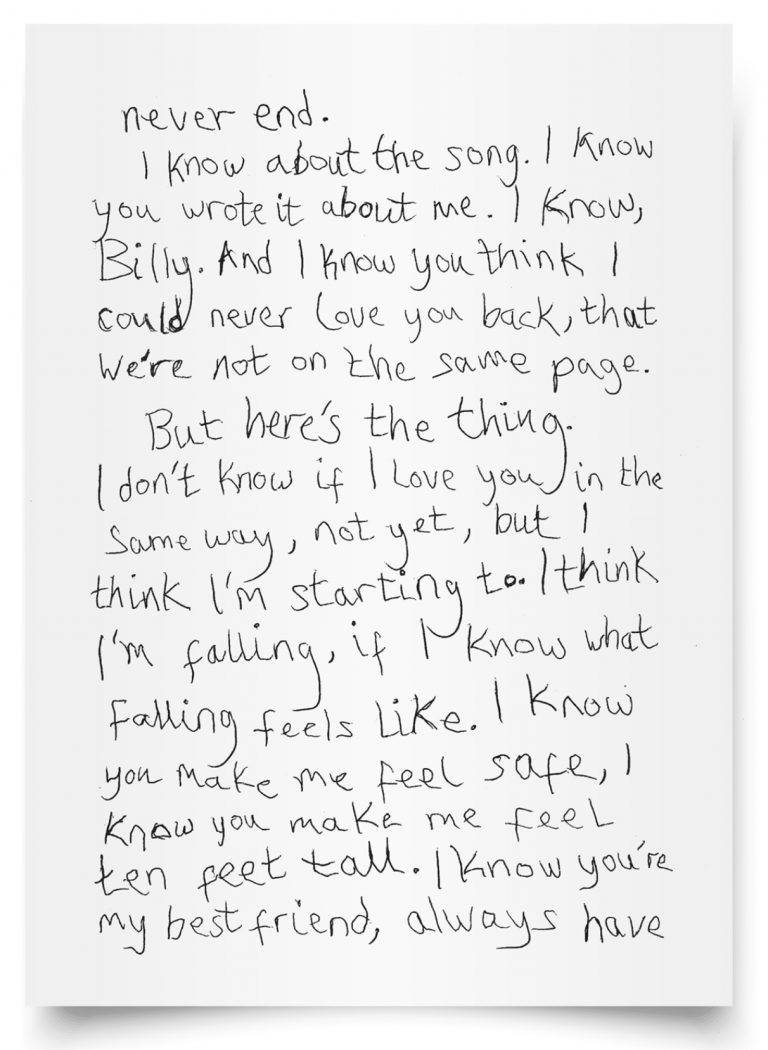 never end.
I know about the song. I know
you wrote it about me. I know,
Billy. And I know you think I
could never love you back, that
we're not on the same page.
But here's the thing.
I don't know if I love you in the
same way, not yet, but I
think I'm starting to. I think
I'm falling, if I know what
falling feels like. I know
you make me feel safe, I
know you make me feel
ten feet tall. I know you're
my best friend, always have